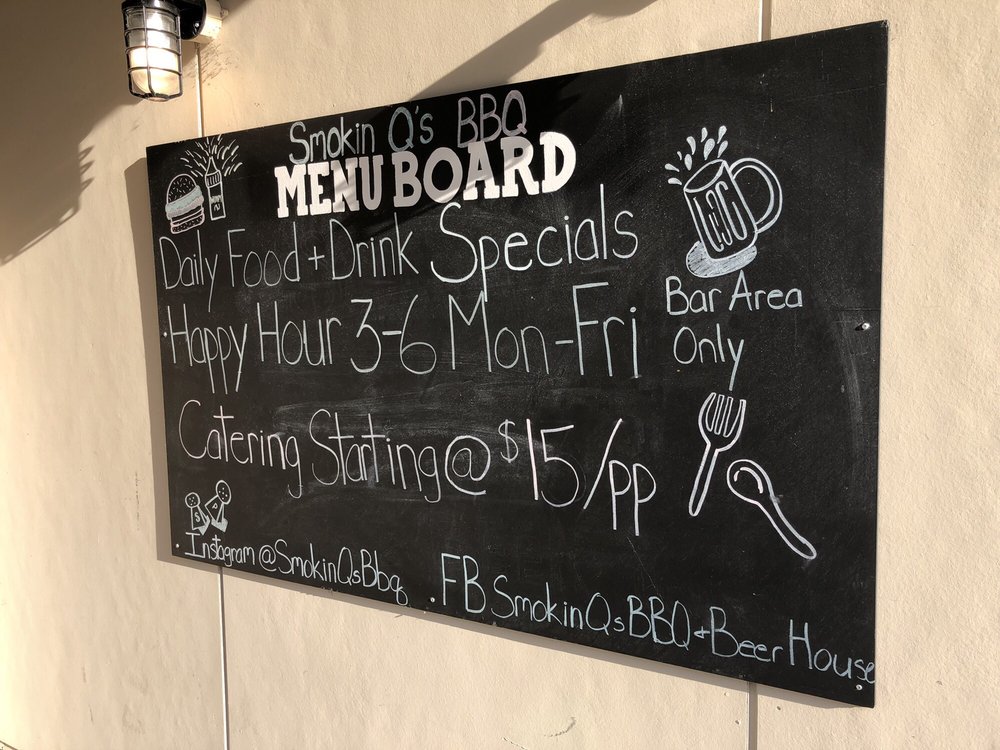 Smokin Q's BBQ
MENU BOARD
Daily Food + Drink Specials
Happy Hour 3-6 Mon-Fri
Bar Area
Only
Catering Starting @ $15/pp
Instagram @SmokinQsBbq
FB SmokinQsBBQ + Beer House